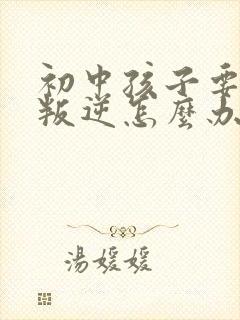 初中孩子要
叛逆怎麼办
湯媛媛